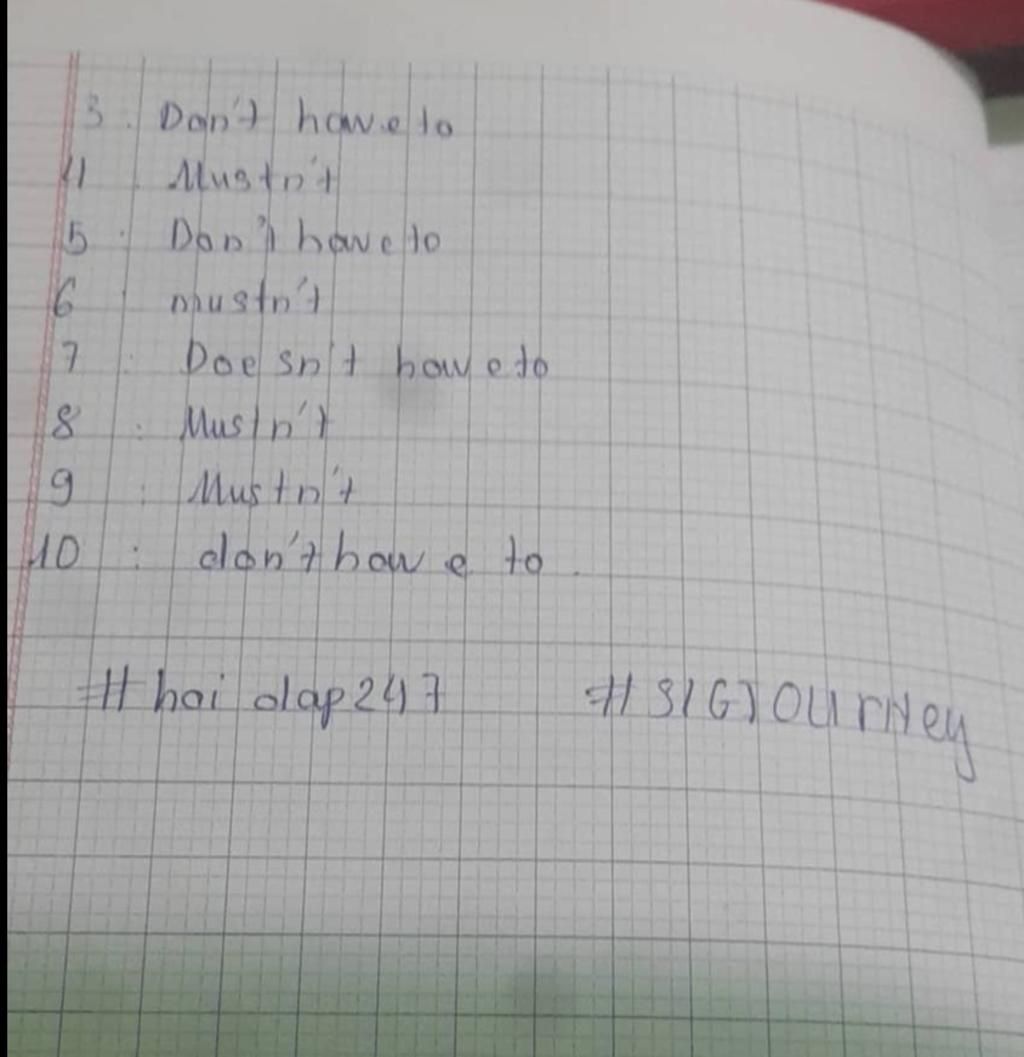 3. Don't have to
4 Mustn't
5. Don't have to
6 mustn't
7: Doesn't have to
8: Mustn't
9: Mustn't
10: don't have to.
#hoidap247 #SIGJOURNey